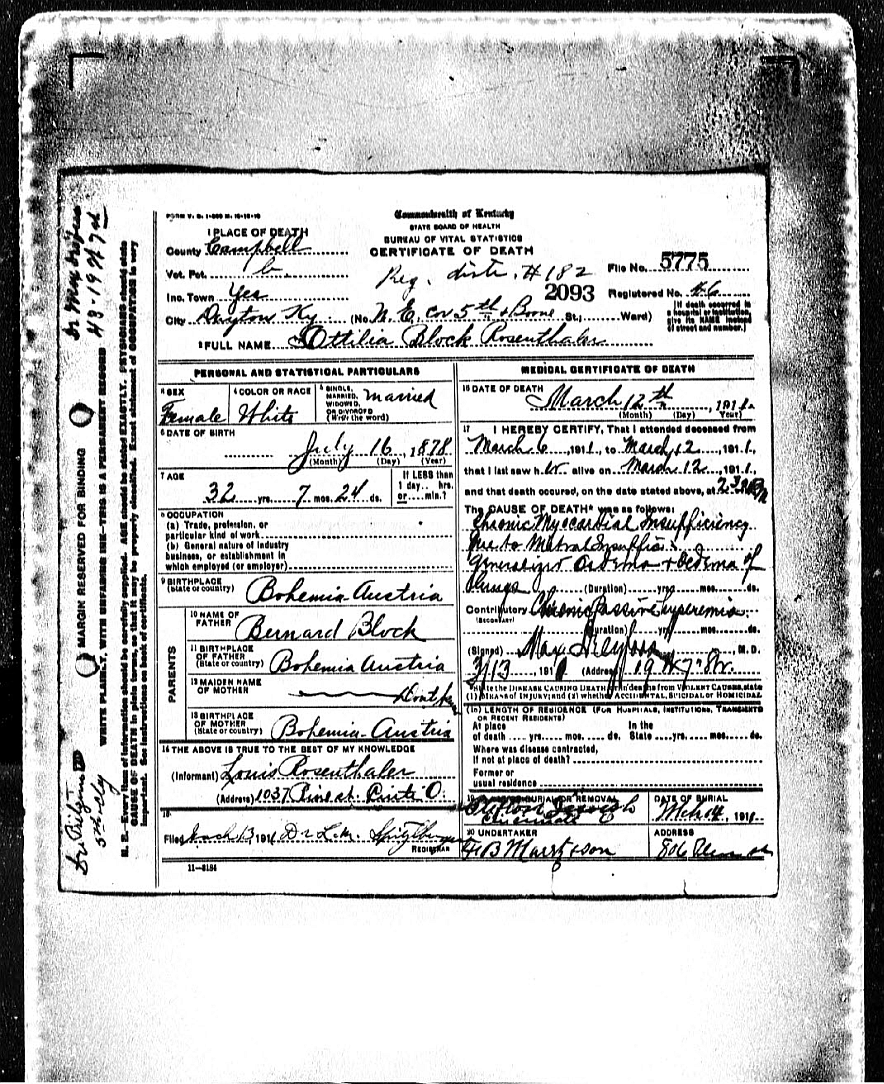 FORM V. S. 1-
Commonwealth of Kentucky
STATE BOARD OF HEALTH
BUREAU OF VITAL STATISTICS
CERTIFICATE OF DEATH
1 PLACE OF DEATH
County Campbell
Vot. Pct.
Reg. distr. #182
File No. 5775
Inc. Town Yes
2093
Registered No. 46
City Dayton Ky. (No. N. E. Cor 5th & Boone St., Ward)
[If death occurred in a hospital or institution, give its NAME instead of street and number.]
2 FULL NAME Ottilia Block Rosenthaler
PERSONAL AND STATISTICAL PARTICULARS
3 SEX
Female
4 COLOR OR RACE
White
5 SINGLE, MARRIED, WIDOWED, OR DIVORCED (Write the word)
Married
6 DATE OF BIRTH
July 16, 1878
(Month) (Day) (Year)
7 AGE
32 yrs. 7 mos. 24 ds.
If LESS than 1 day.... hrs. or.... min.?
8 OCCUPATION
(a) Trade, profession, or
particular kind of work
(b) General nature of industry
business, or establishment in
which employed (or employer)
9 BIRTHPLACE
(State or country)
Bohemia Austria
PARENTS
10 NAME OF FATHER
Bernard Block
11 BIRTHPLACE OF FATHER
(State or country)
Bohemia Austria
12 MAIDEN NAME OF MOTHER
13 BIRTHPLACE OF MOTHER
(State or country)
Bohemia-Austria
14 THE ABOVE IS TRUE TO THE BEST OF MY KNOWLEDGE
(Informant) Louis Rosenthaler
(Address) 1037
15
Filed March 13 191 Dr L.
REGISTRAR
11-3184
MEDICAL CERTIFICATE OF DEATH
16 DATE OF DEATH
March 12th, 1911.
(Month) (Day) (Year)
17 I HEREBY CERTIFY, That I attended deceased from
March 6, 1911, to March 12, 1911,
that I last saw her alive on March 12, 1911,
and that death occured, on the date stated above, at
The CAUSE OF DEATH* was as follows:
Chronic Myocardial Insufficiency
due to Mitral
Oedema + Oedema of
Lungs
(Duration) yrs. mos. ds.
Contributory Chronic Passive Hyperemia
(SECONDARY)
(Duration) yrs. mos. ds.
(Signed) Max M.D.
3/13 1911 (Address) 19 W 7" St.
*State the DISEASE CAUSING DEATH, or in deaths from VIOLENT CAUSES, state (1) MEANS of INJURY; and (2) whether ACCIDENTAL, SUICIDAL or HOMICIDAL.
18 LENGTH OF RESIDENCE (FOR HOSPITALS, INSTITUTIONS, TRANSIENTS OR RECENT RESIDENTS)
At place of death .... yrs. .... mos. .... ds. In the State .... yrs. .... mos. .... ds.
Where was disease contracted,
if not at place of death?
Former or
usual residence
19 PLACE OF BURIAL OR REMOVAL
Cincinnati
DATE OF BURIAL
Mch 14, 1911
20 UNDERTAKER
ADDRESS
MARGIN RESERVED FOR BINDING
WRITE PLAINLY, WITH UNFADING INK—THIS IS A PERMANENT RECORD
N. B.—Every item of information should be carefully supplied. AGE should be stated EXACTLY. PHYSICIANS should state
CAUSE OF DEATH in plain terms, so that it may be properly classified. Exact statement of OCCUPATION is very
important. See instructions on back of certificate.